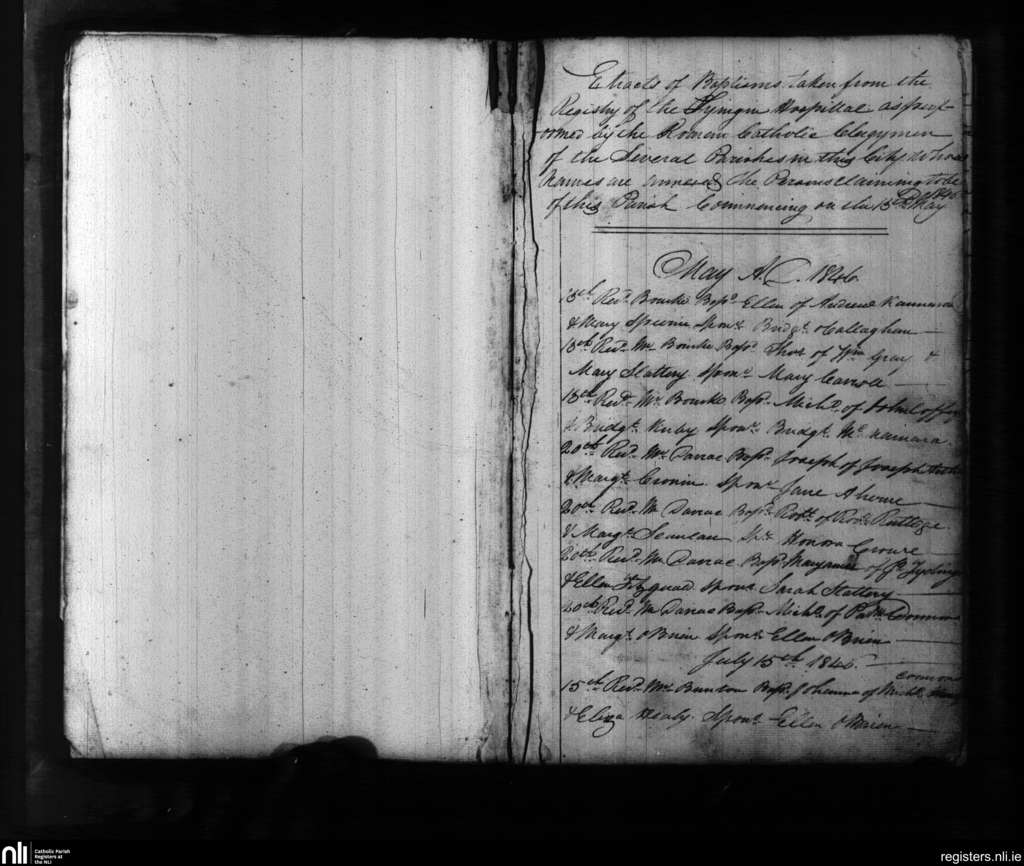 Etracts of Baptisms taken from the
Registry of the Lyingin Hospittal as perf-
ormed by the Roman Catholic Clergymen
of the Several Parishes in this City whose
Names are annexed the Persons claiming to be
of this Parish Commencing on the 15th May 1846
May A.D. 1846
15th Revd. Bourke Bapd. Ellen of Andrew
& Mary Sponr. Bridgt. OCallaghan
15th Revd. Mr. Bourke Bapd. Thos of Wm Gray &
Mary Slattery Sponr. Mary Carroll
15th Revd. Mr. Bourke Bapd. Michl. of
& Bridgt. Kirby Sponr. Bridgt. McNamara
20th Revd. Mr. Bapd. Joseph of Joseph
& Margt. Cronin Sponr. Jane Aherne
20th Revd. Mr. Bapd. Robt. of Robt. Rutlege
& Margt. Scanlan Spr. Honora Crowe
20th Revd. Mr. Bapd. Maryanne of
& Ellen Sponr. Sarah Slattery
20th Revd. Mr. Bapd. Michl. of Patk.
& Margt. OBrien Sponr. Ellen OBrien
July 15th 1846.
15th Revd. Mr. Bunton Bapd. Johanna of Michl.
& Eliza Healy Sponr. Ellen OBrien
nli
Catholic Parish
Registers at
the NLI
registers.nli.ie